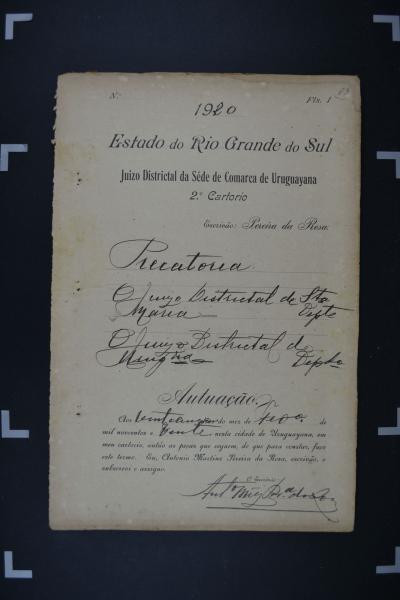 Nº Fls. 1
1920
Estado do Rio Grande do Sul
Juizo Districtal da Séde de Comarca de Uruguayana
2.º Cartorio
Escrivão: Pereira da Rosa.
Precatoria
O Juizo Districtal de Sta
Maria Dépte
O Juizo Districtal de
Depdo
Autuação
Aos vinte cinco do mez de de
mil novecentos e vinte nesta cidade de Uruguayana, em
meu cartorio, autúo as peças que seguem, do que para constar, faço
este termo. Eu, Antonio Martins Pereira da Rosa, escrivão, o
subscrevi e assigno.
O Escrivão